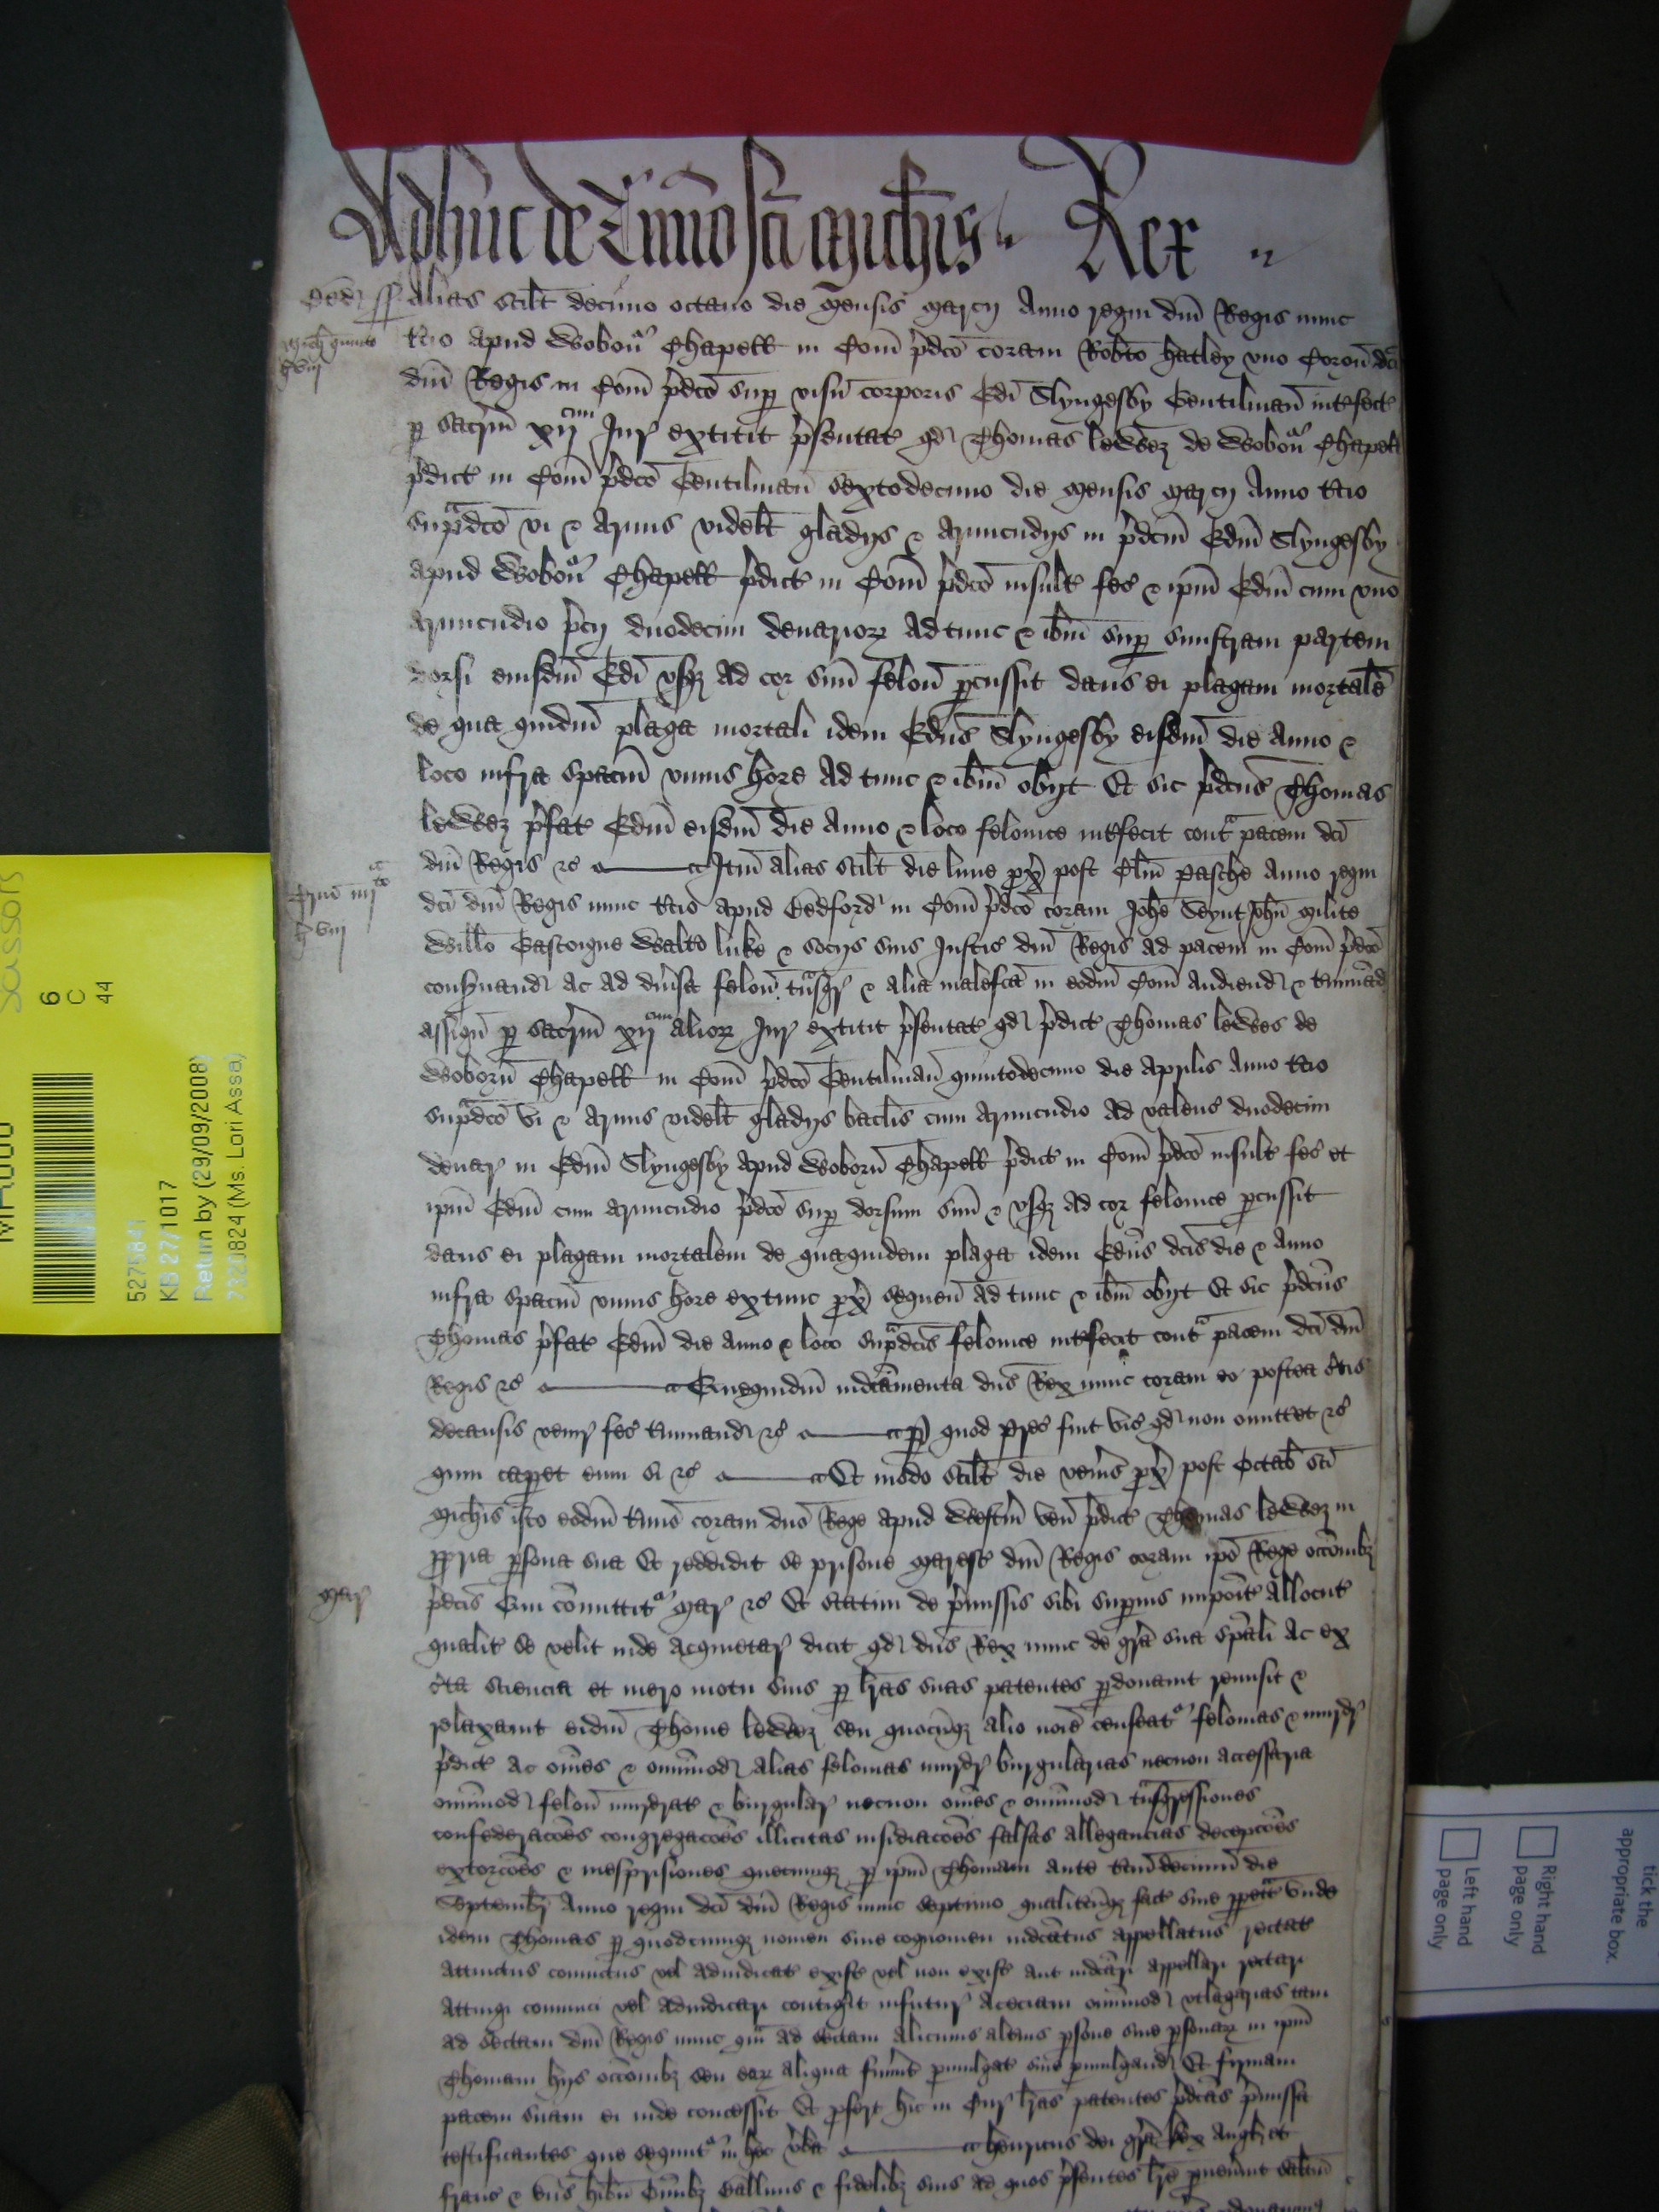 Adhuc de Tmino sci Michis Rex
Bed ss Alias scilt decimo octavo die mensis marcij Anno regni dni Regis nunc
Mich quinto h viij
tcio apud Woborn Chapell in Com pdco coram Robto hatley uno Coron dci
dni Regis in Com pdco sup visu corporis Edi Slyngesby Gentilman intfect
p sacrm xij cim Jur extitit psentat qd Thomas lewez de Woborn Chapell
pdict in Com pdco Gentilman sextodecimo die mensis marcij Anno tcio
supadco vi & armis videlt gladijs & armicudijs in pdcm Edm Slyngesby
apud Woborn Chapell pdict in Com pdco insult fec & ipm Edm cum uno
armicudio pcij duodecim denarior adtunc & ibm sup sinistram partem
dorsi eiusdm Edi usq ad cor suu felon pcussit dans ei plagam mortale
de qua quidm plaga mortali idem Edus Slyngesby eisdm die Anno &
loco infra spacm unius hore ad tunc & ibm obijt Et sic pdcus Thomas
lewez pfat Edm eisdm die Anno & loco felonice intfecit conta pacem dci
dni Regis &c Itm alias scilt die lune px post Clm Pasche Anno regni
Trin iiij to h viij
dci dni Regis nunc tcio apud Bedford in Com pdco coram Johe Seynt John milite
Willo Gascoigne Walto luke & socijs suis Justic dni Regis ad pacem in Com pdco
consvand ac ad divsa felon tnsgr & alia malefca in eodm Com audiend & tminad
assign p sacrm xij cim alior Jur extitit psentat qd pdict Thomas lewes de
Woborn Chapell in Com pdco Gentilman quintodecimo die Aprilis Anno tcio
supadco vi & armis videlt gladijs baclis cum armicudio ad valenc duodecim
denar in Edm Slyngesby apud Woborn Chapell pdict in Com pdco insult fec et
ipm Edm cum armicudio pdco sup dorsum suu & usq ad cor felonice pcussit
dans ei plagam mortalem de quaquidem plaga idem Edus dcis die & Anno
infra spacm unius hore extunc px sequen ad tunc & ibm obijt Et sic pdcus
Thomas pfat Edm die anno & loco supadcis felonice intfecit conta pacem dci dni
Regis &c Quequidm indcamenta dns Rex nunc coram eo postea ctis
de causis venir fec tminand &c p quod prec fuit vic qd non omittet &c
quin capet eum si &c Et modo scilt die venis px post Octab sci
Michis isto eodm tmio coram dno Rege apud Westm ven pdict Thomas lewez in
ppria psona sua Et reddidit se prisone maresc dni Regis coram ipo Rege occoib
Mar
pdcis Qui comittit mar &c Et statim de pmissis sibi supius impoit allocut
qualit se velit inde acquietar dicit qd dns Rex nunc de gra sua spali ac ex
cta sciencia et mero motu suis p lras suas patentes pdonavit remisit &
relaxavit eidm Thome lewez seu quocuq alio noie censeat felonias & murdr
pdict ac omes & omimod alias felonias murdr burgularias necnon accessaria
omimod felon murdrat & burgular necnon omes & omimod tnsgressiones
confederacoes congregacoes illicitas insidiacoes falsas allegancias decepcoes
extorcoes & mesprisiones quecumq p ipm Thomam ante decimu die
Septembr Anno regni dci dni Regis nunc septimo qualitcuq fact sive ppetat unde
idem Thomas p quodcumq nomen sive cognomen indcatus appellatus rectat
attinctus convictus vel adiudicat exist vel non exist aut indcari appellari rectari
attingi convinci vel adiudicari contigit infutur aceciam omimod utlagarias tam
ad sectam dni Regis nunc qm ad sectam alicuius altius psone sive psonar in ipm
Thomam hijs occoib seu ear aliqua fuint pmulgat sive pmulgand Et firmam
pacem suam ei inde concessit Et pfert hic in Cur lras patentes pdcas pmissa
testificantes que sequnt in hec vba henricus dei gra Rex Angl et
franc & dns hibn Omib Ballivis & fidelib suis ad quos psentes lre pvenint saltm
MA000
6
C
44
5275841
KB 27/1017
Return by (29/09/2008)
7320824 (Ms. Lori Assa)
tick the
appropriate box.
Right hand
page only
Left hand
page only